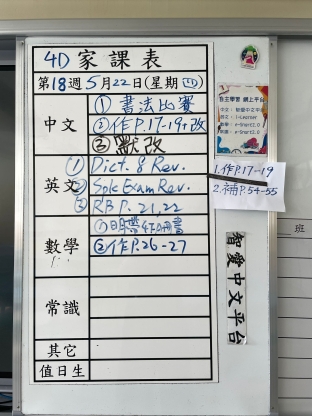 4D 家課表
第18週5月22日(星期四)
中文
① 書法比賽
② 作P.17-19+改
③ 默改
英文
① Dict. 8 Rev.
② Spk Exam Rev.
③ RB P. 21,22
數學
② 作P.26-27
常識
其它
值日生
自主學習 網上平台
1.作P.17-19
2.補P.54-55
智愛中文平台
班